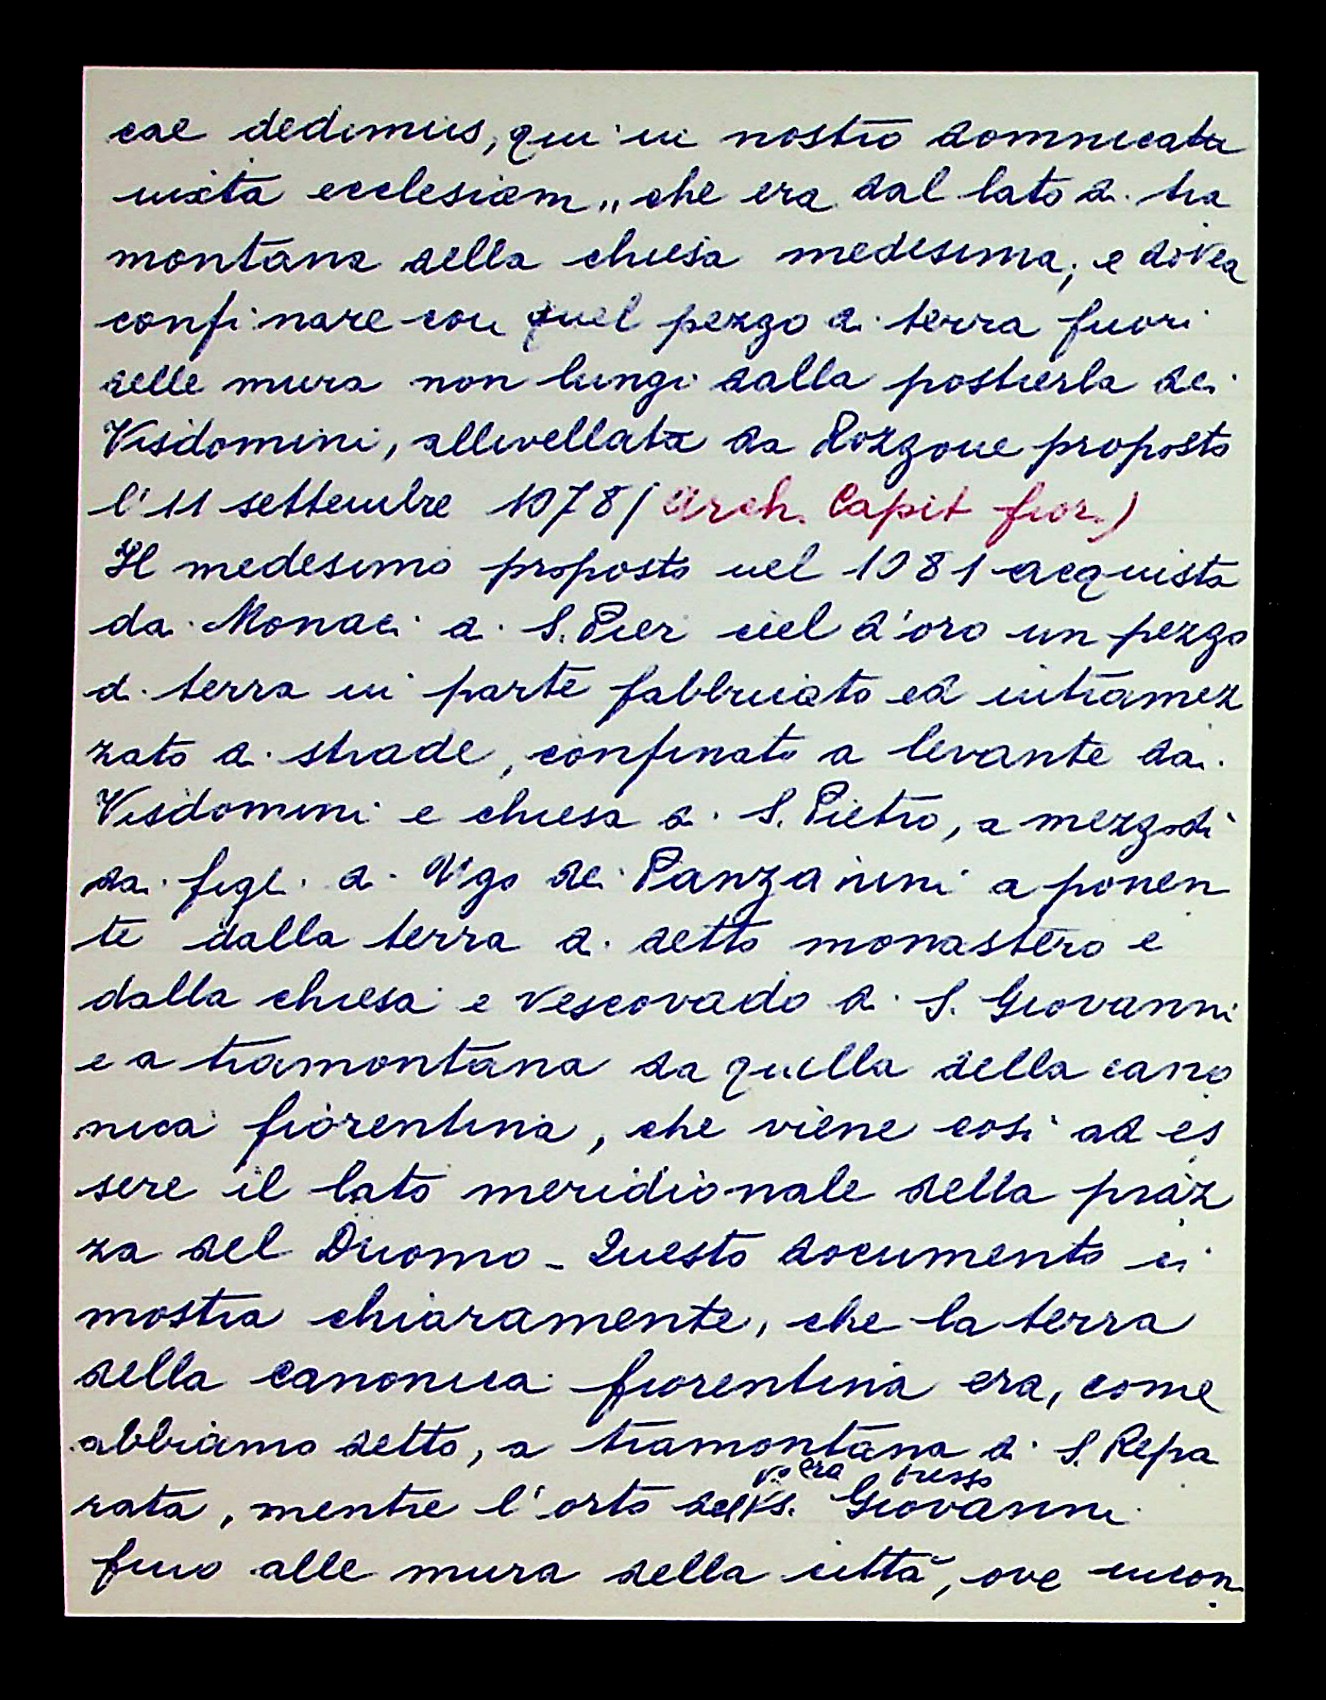 cae dedimus, qui in nostro domnicatu
iuxta ecclesiam,, che era dal lato di tra
montana della chiesa medesima; e dovea
confinare con quel pezzo di terra fuori
delle mura non lungi dalla postierla dei
Visdomini, allivellata da Rozzone proposto
l'11 settembre 1078 (Arch. Capit fior.)
Il medesimo proposto nel 1081 acquista
dai Monaci di S. Pier ciel d'oro un pezzo
di terra in parte fabbricato ed intramez
zato di strade, confinato a levante dai
Visdomini e chiesa di S. Pietro, a mezzodì
dai figli di Ugo dei Panzanini a ponen
te dalla terra di detto monastero e
dalla chiesa e vescovado di S. Giovanni
e a tramontana da quella della cano
nica fiorentina, che viene così ad es
sere il lato meridionale della piaz
za del Duomo - Questo documento ci
mostra chiaramente, che la terra
della canonica fiorentina era, come
abbiamo detto, a tramontana di S. Repa
rata, mentre l'orto del S. Giovanni
fino alle mura della città, ove incon